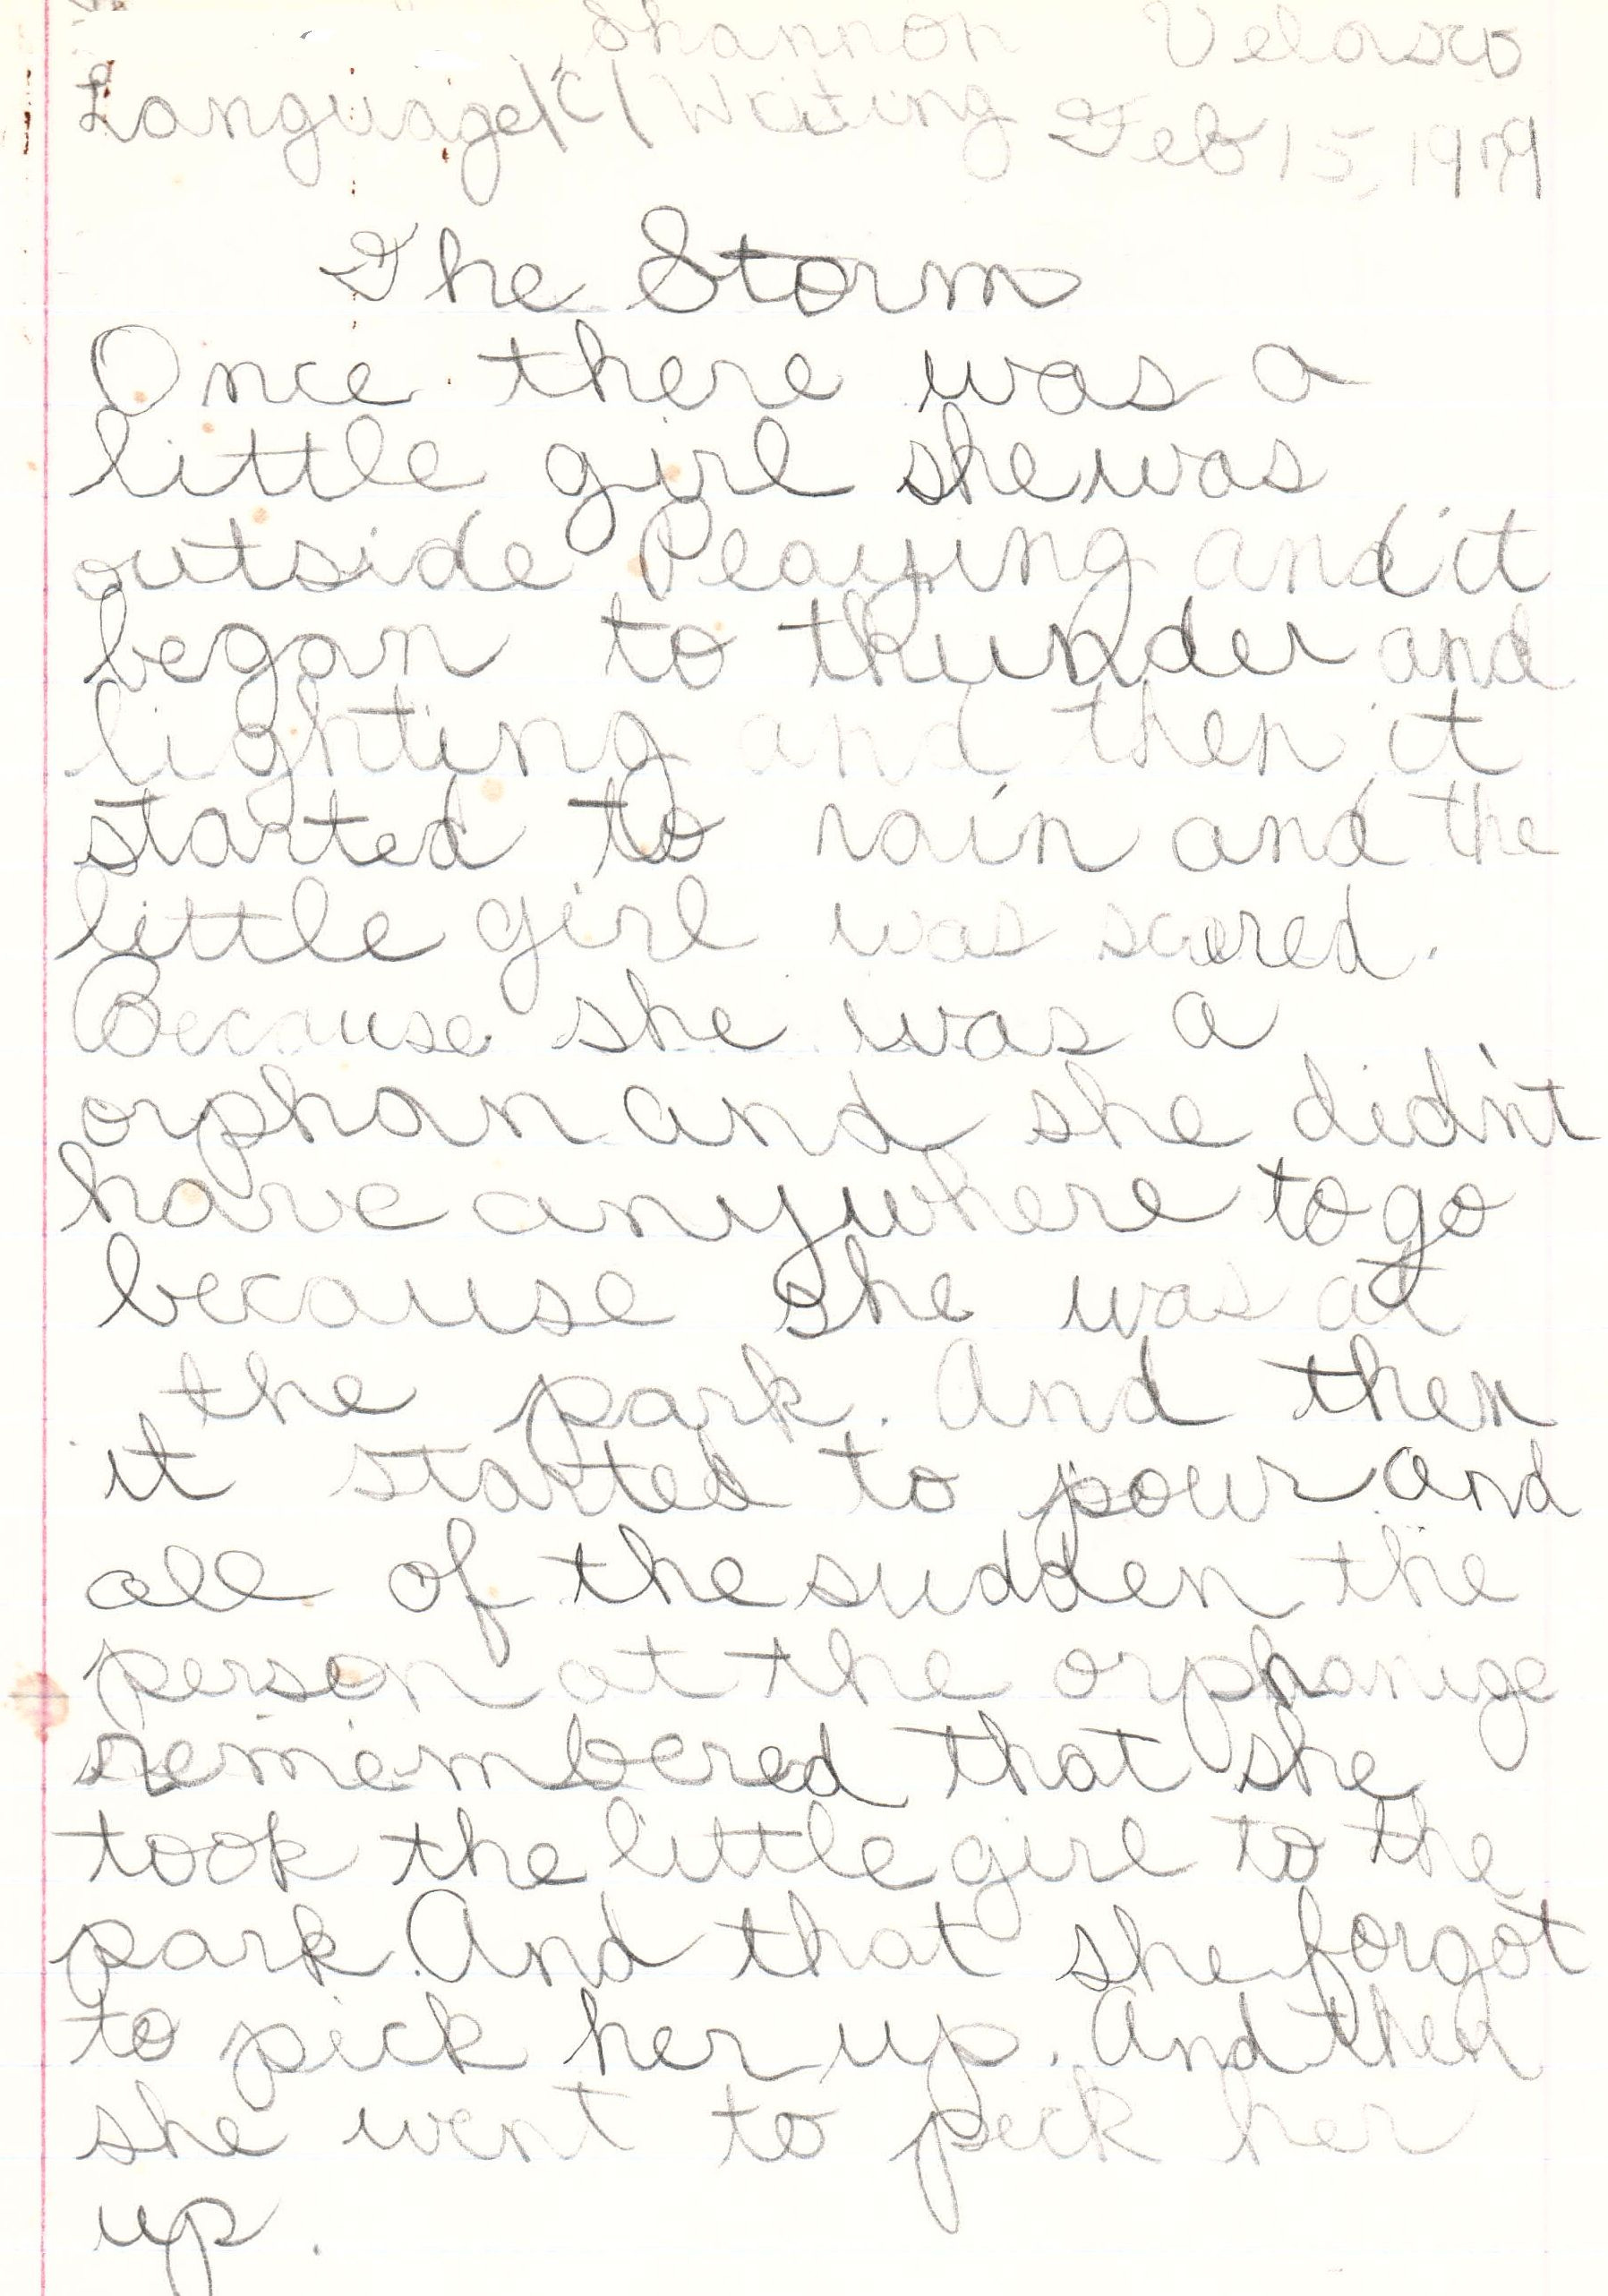 Shannon Velasco
Language/C/Writing Feb 15, 1979
The Storm
Once there was a
little girl she was
outside Pleaying and it
began to thunder and
lighting and then it
started to rain and the
little girl was scared.
Because she was a
orphan and she didn't
have anywhere to go
because she was at
the park. And then
it started to pour and
all of the sudden the
person at the orphanige
remembered that she
took the little girl to the
park. And that she forgot
to pick her up. And then
she went to pick her
up.